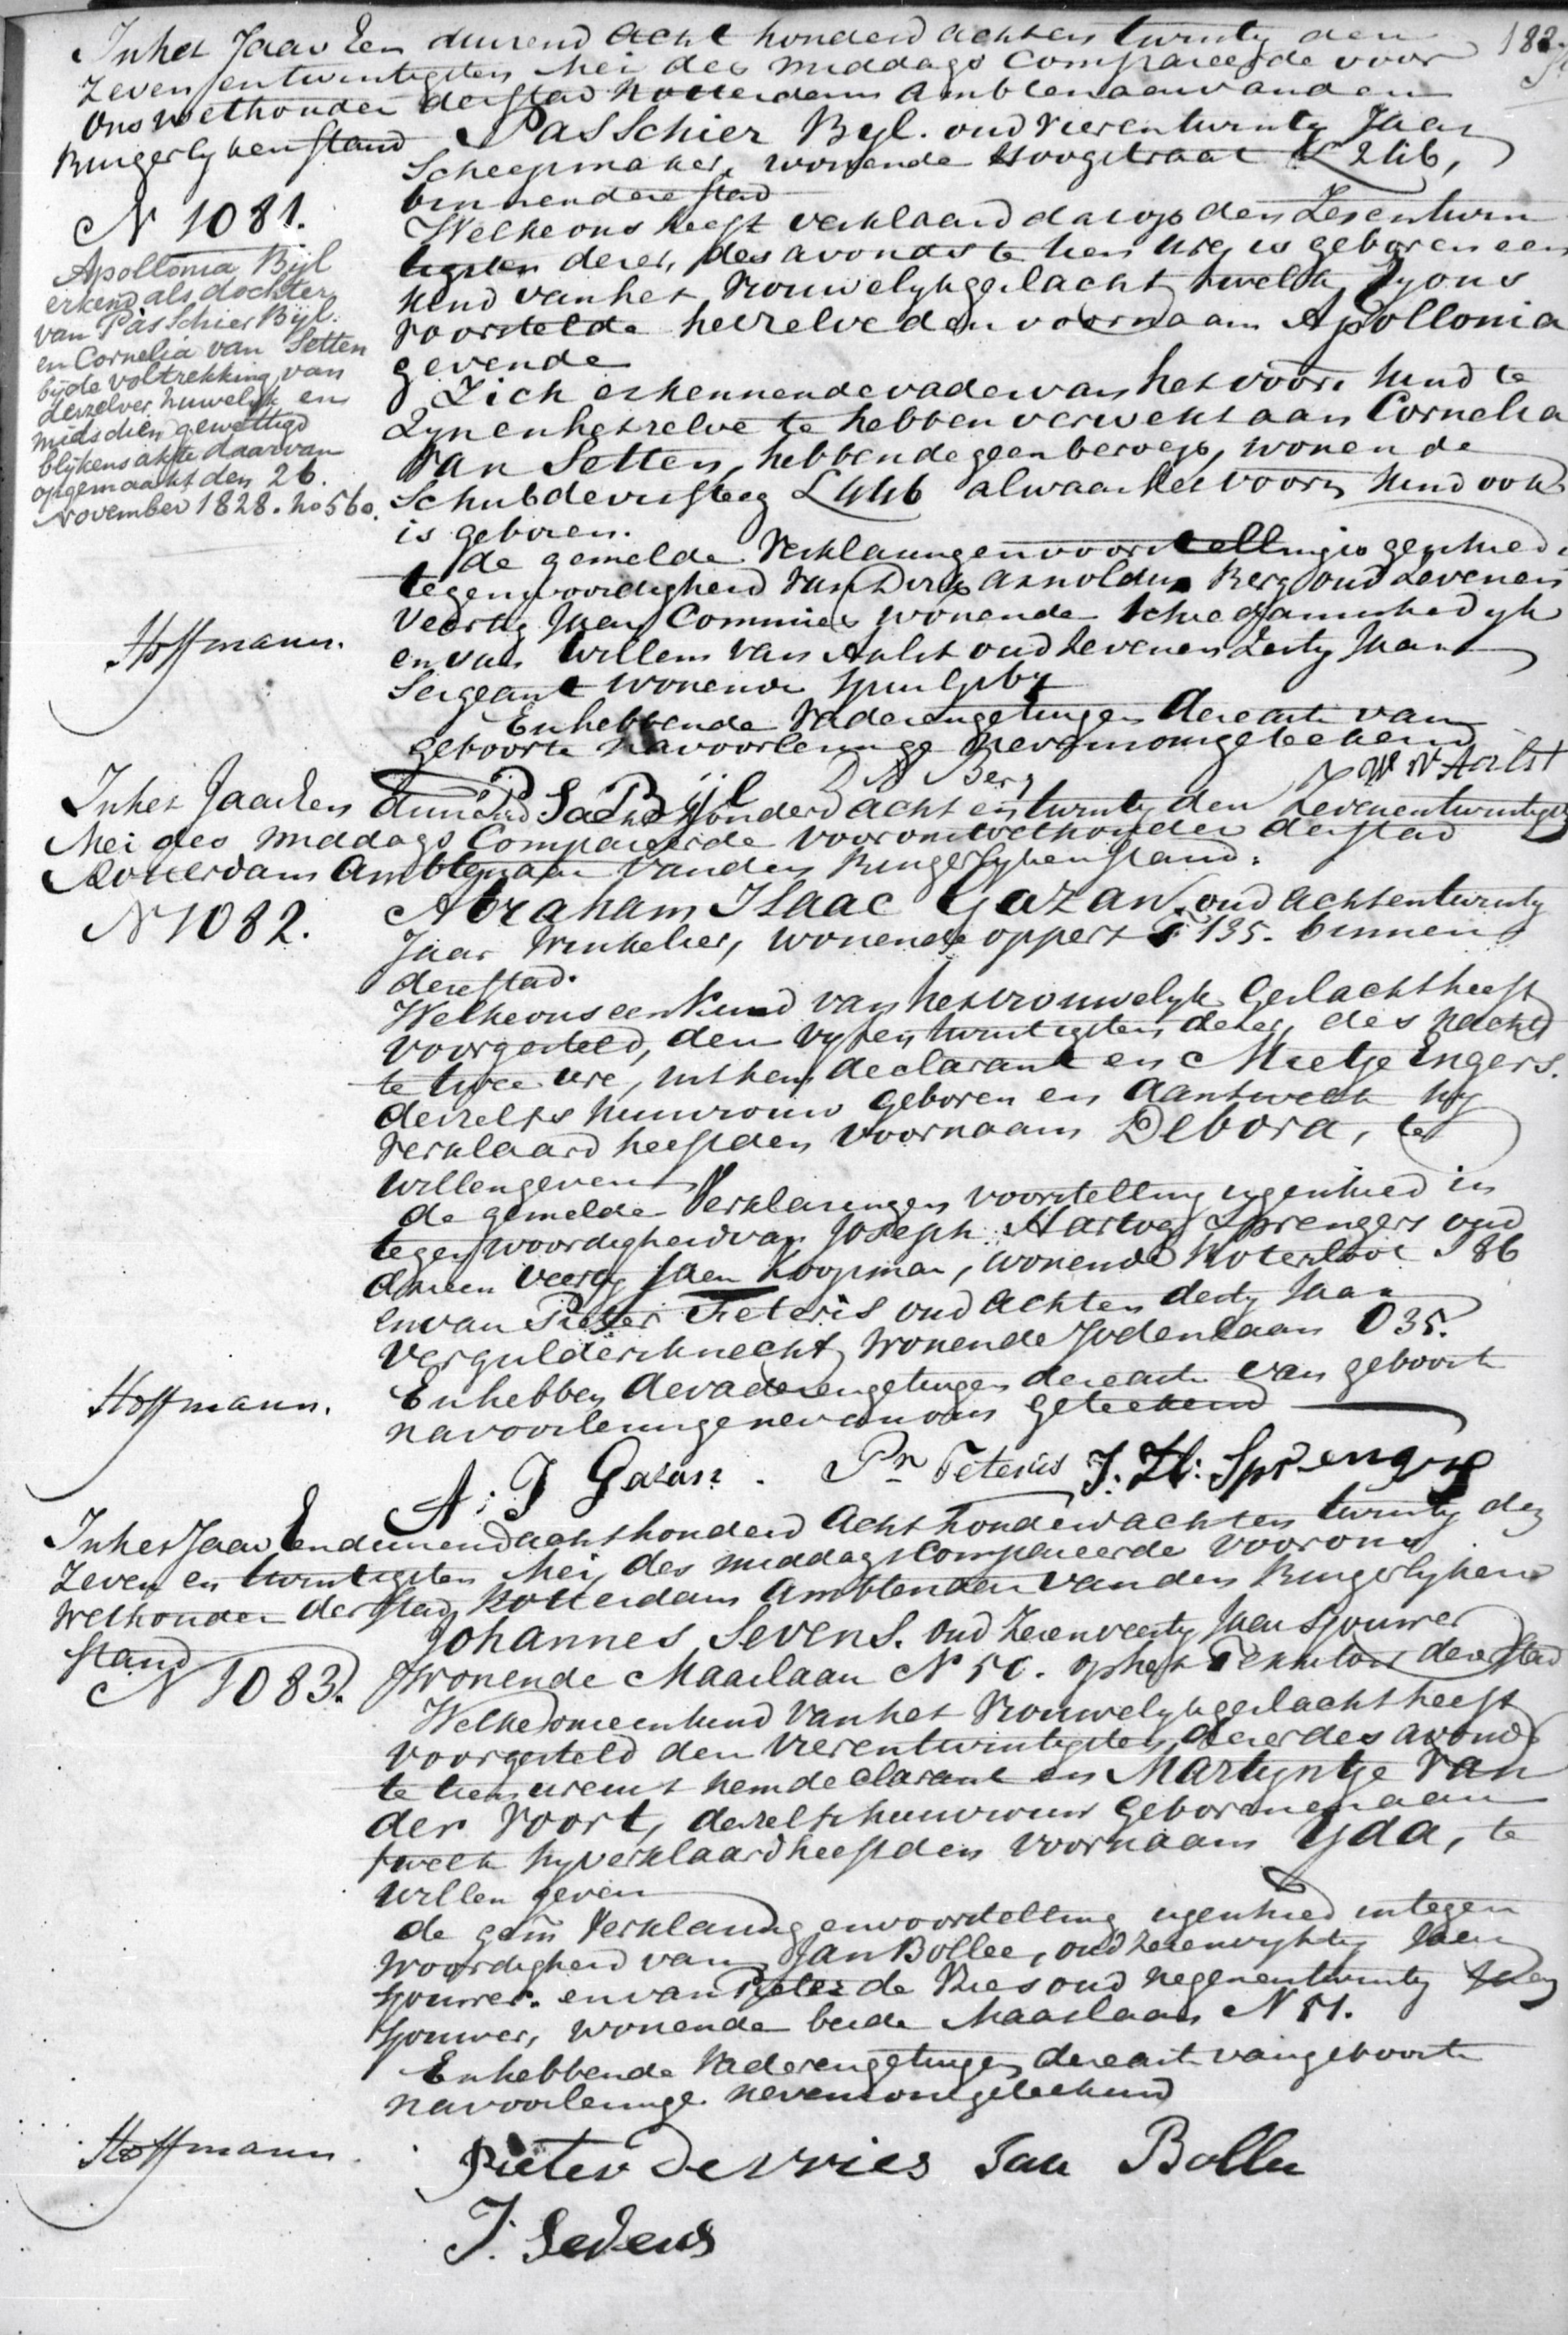 In het Jaar Een duizend acht honderd achten twintig den
Zeven en twintigsten Mei des middags Compareerde voor
Ons Wethouder der stad Rotterdam Ambtenaar van den
Burgerlyken stand
Passchier Byl. oud vieren twintig Jaar
Scheepmaker, wonende Hoogstraat
binnen deze stad
N 1081.
Welke ons heeft verklaard dat op den Zesentwin
tigsten dezer, des avonds te tien ure, is geboren een
kind van het vrouwelyk geslacht, twelk hy ons
voorstelde hetzelve den voornaam Apollonia
gevende
Zich erkennende vader van het voors kind te
Zyn en hetzelve te hebben verwekt aan Cornelia
Van Setten, hebbende geen beroep, wonende
L 446 alwaar het voors kind ook
is geboren.
Apollonia Bijl
erkend als dochter
van Passchier Bijl.
en Cornelia van Setten
bij de voltrekking van
derzelver huwelijk en
mids dien gewettigd
blijkens akte daarvan
opgemaakt den 26.
November 1828. No 560.
de gemelde Verklaring en voorstelling is geschied in
tegenwoordigheid van Dirk Arnoldus Berg oud Zeven en
Veertig Jaar Commies wonende Schiedamschedyk
en van Willem van Aalst oud Zeven en Zestig Jaar
Sergeant wonende
En hebben de Vader en getuigen deze acte van
geboorte na voorlezinge nevens ons geteekend
Hoffmann.
P S Bÿl D A Berg W V Aalst
In het Jaar Een duizend acht honderd acht en twintig den Zevenentwintigsten
Mei des middags Compareerde voor ons Wethouder der stad
Rotterdam Ambtenaar van den Burgerlyken stand.
N 1082.
Abraham Isaac Gazan, oud achtentwintig
Jaar Winkelier, wonende oppert 135. binnen
deze stad.
Welke ons een kind van het vrouwelyk Geslacht heeft
voorgesteld, den vyfen twintigsten dezer, des nachts
te twee ure, uit hem declarant en Mietje Engers.
deszelfs huisvrouw geboren en aan twelk hy
verklaard heeft den voornaam Debora, te
willen geven
de gemelde Verklaring en voorstelling is geschied in
tegenwoordigheid van Joseph Hartog Sprengers oud
drieen veertig Jaar Koopman, wonende 86
en van Pieter Feteris oud achten dertig Jaar
Verguldersknecht, wonende Jodenlaan O 35.
En hebben de vader en getuigen deze acte van geboorte
na voorlezinge nevens ons geteekend
Hoffmann.
A: J Gazan. Pr Feteris J: H: Sprengers
In het Jaar Eenduizend achthonderd acht honderd achten twintig den
Zeven en twintigsten Mei, des middags Compareerde voor ons
Wethouder der stad Rotterdam Ambtenaar van den Burgerlyken
stand
N 1083.
Johannes Sevens. oud Zevenveertig Jaar sjouwer
wonende Maaslaan N 50. op het dezer stad
Welke ons een kind van het Vrouwelyk geslacht heeft
voorgesteld den vierentwintigsten dezer des avonds
te tien ure uit hem declarant en Martyntje van
der Voort, deszelfs huisvrouw geboren en aan
twelk hy verklaard heeft den voornaam Yda, te
willen geven
de gem Verklaring en voorstelling is geschied in tegen
woordigheid van Jan Bollee, oud Jaar
sjouwer. en van Pieter de Vries oud negenentwintig Jaar
sjouwer, wonende beide Maaslaan N 51.
En hebben de Vader en getuigen deze acte van geboorte
na voorlezinge nevens ons geteekend
Hoffmann.
Pieter de Vries Jan Bollee
J. Sevens